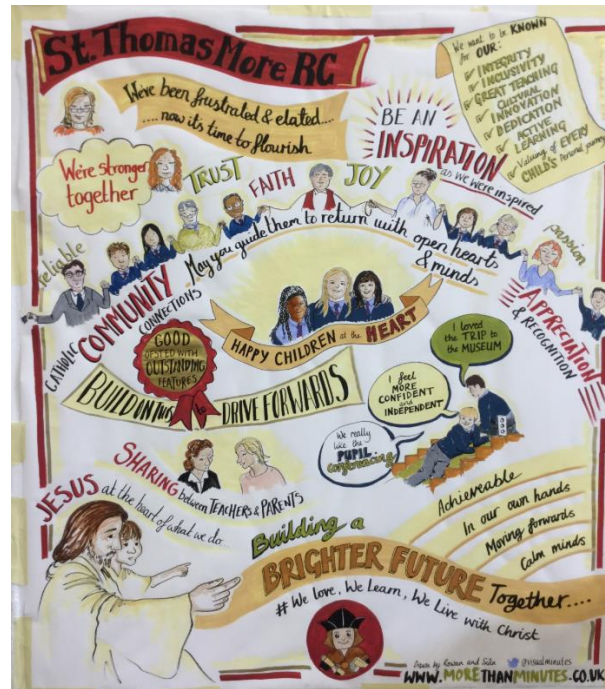 St. Thomas More RC
We've been frustrated & elated....
....now it's time to flourish
BE AN
INSPIRATION
as we were inspired
We want to be KNOWN
for OUR:
INTEGRITY
INCLUSIVITY
GREAT TEACHING
CULTURAL
INNOVATION
DEDICATION
ACTIVE
LEARNING
Valuing of EVERY
CHILD'S Personal journey
We're stronger
together
TRUST
FAITH
JOY
reliable
passion
May you guide them to return with open hearts
& minds
CATHOLIC
COMMUNITY
CONNECTIONS
APPRECIATION
& RECOGNITION
HAPPY CHILDREN at the HEART
GOOD
OFSTED WITH
OUTSTANDING
FEATURES
BUILD ON THIS to DRIVE FORWARDS
I loved
the TRIP to
the MUSEUM
I feel
MORE
CONFIDENT
and
INDEPENDENT
We really
like the
PUPIL
conferencing
SHARING between TEACHERS & PARENTS
JESUS at the heart of what we do...
Achieveable
In our own hands
Moving forwards
Calm minds
Building a
BRIGHTER FUTURE Together....
# We Love, We Learn, We Live with Christ
Drawn by Rowan and
@visualminutes
WWW.MORETHANMINUTES.CO.UK